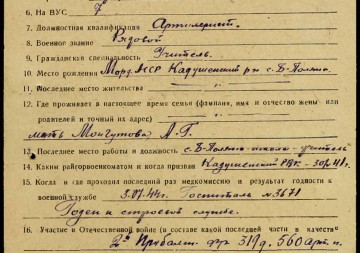 6. На ВУС 7
7. Должностная квалификация Артилерист.
8. Военное звание Рядовой
9. Гражданская специальность Учитель.
10. Место рождения Морд. АССР Кадушенский р-н с. Б-Поляна
11. Последнее место жительства
12. Где проживает в настоящее время семья (фамилия, имя и отчество жены или
родителей и точный их адрес)
мать Моисутова А. Г.
13. Последнее место работы и должность с. Б-Поляна школа - учитель
14. Каким райгорвоенкоматом и когда призван Кадушенский РВК - 41 г.
15. Когда и где проходил последний раз медкомиссию и результат годности к
военной службе 3.07.44г. Госпиталь № 3671
Годен к строевой службе.
16. Участие в Отечественной войне (в составе какой последней части в качестве
2й Прибалт. фр 319 д. 560 Арт. п.